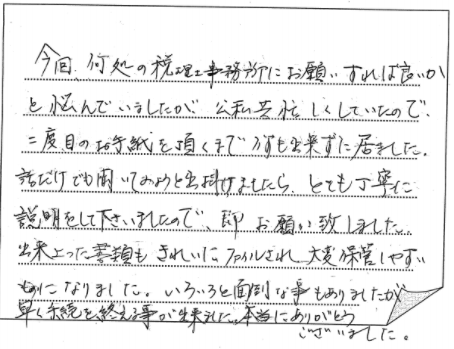 今回、何処の税理士事務所にお願いすれば良いか
と悩んでいましたが、公私共忙しくしていたので、
二度目のお手紙を頂くまで何も出来ずに居ました。
話だけでも聞いてみようと出掛けましたら、とても丁寧に
説明をして下さいましたので、即お願い致しました。
出来上った書類もきれいにファイルされ、大変保管しやすい
ものになりました。いろいろと面倒な事もありましたが
早く手続を終える事が出来ました。本当にありがとう
ございました。